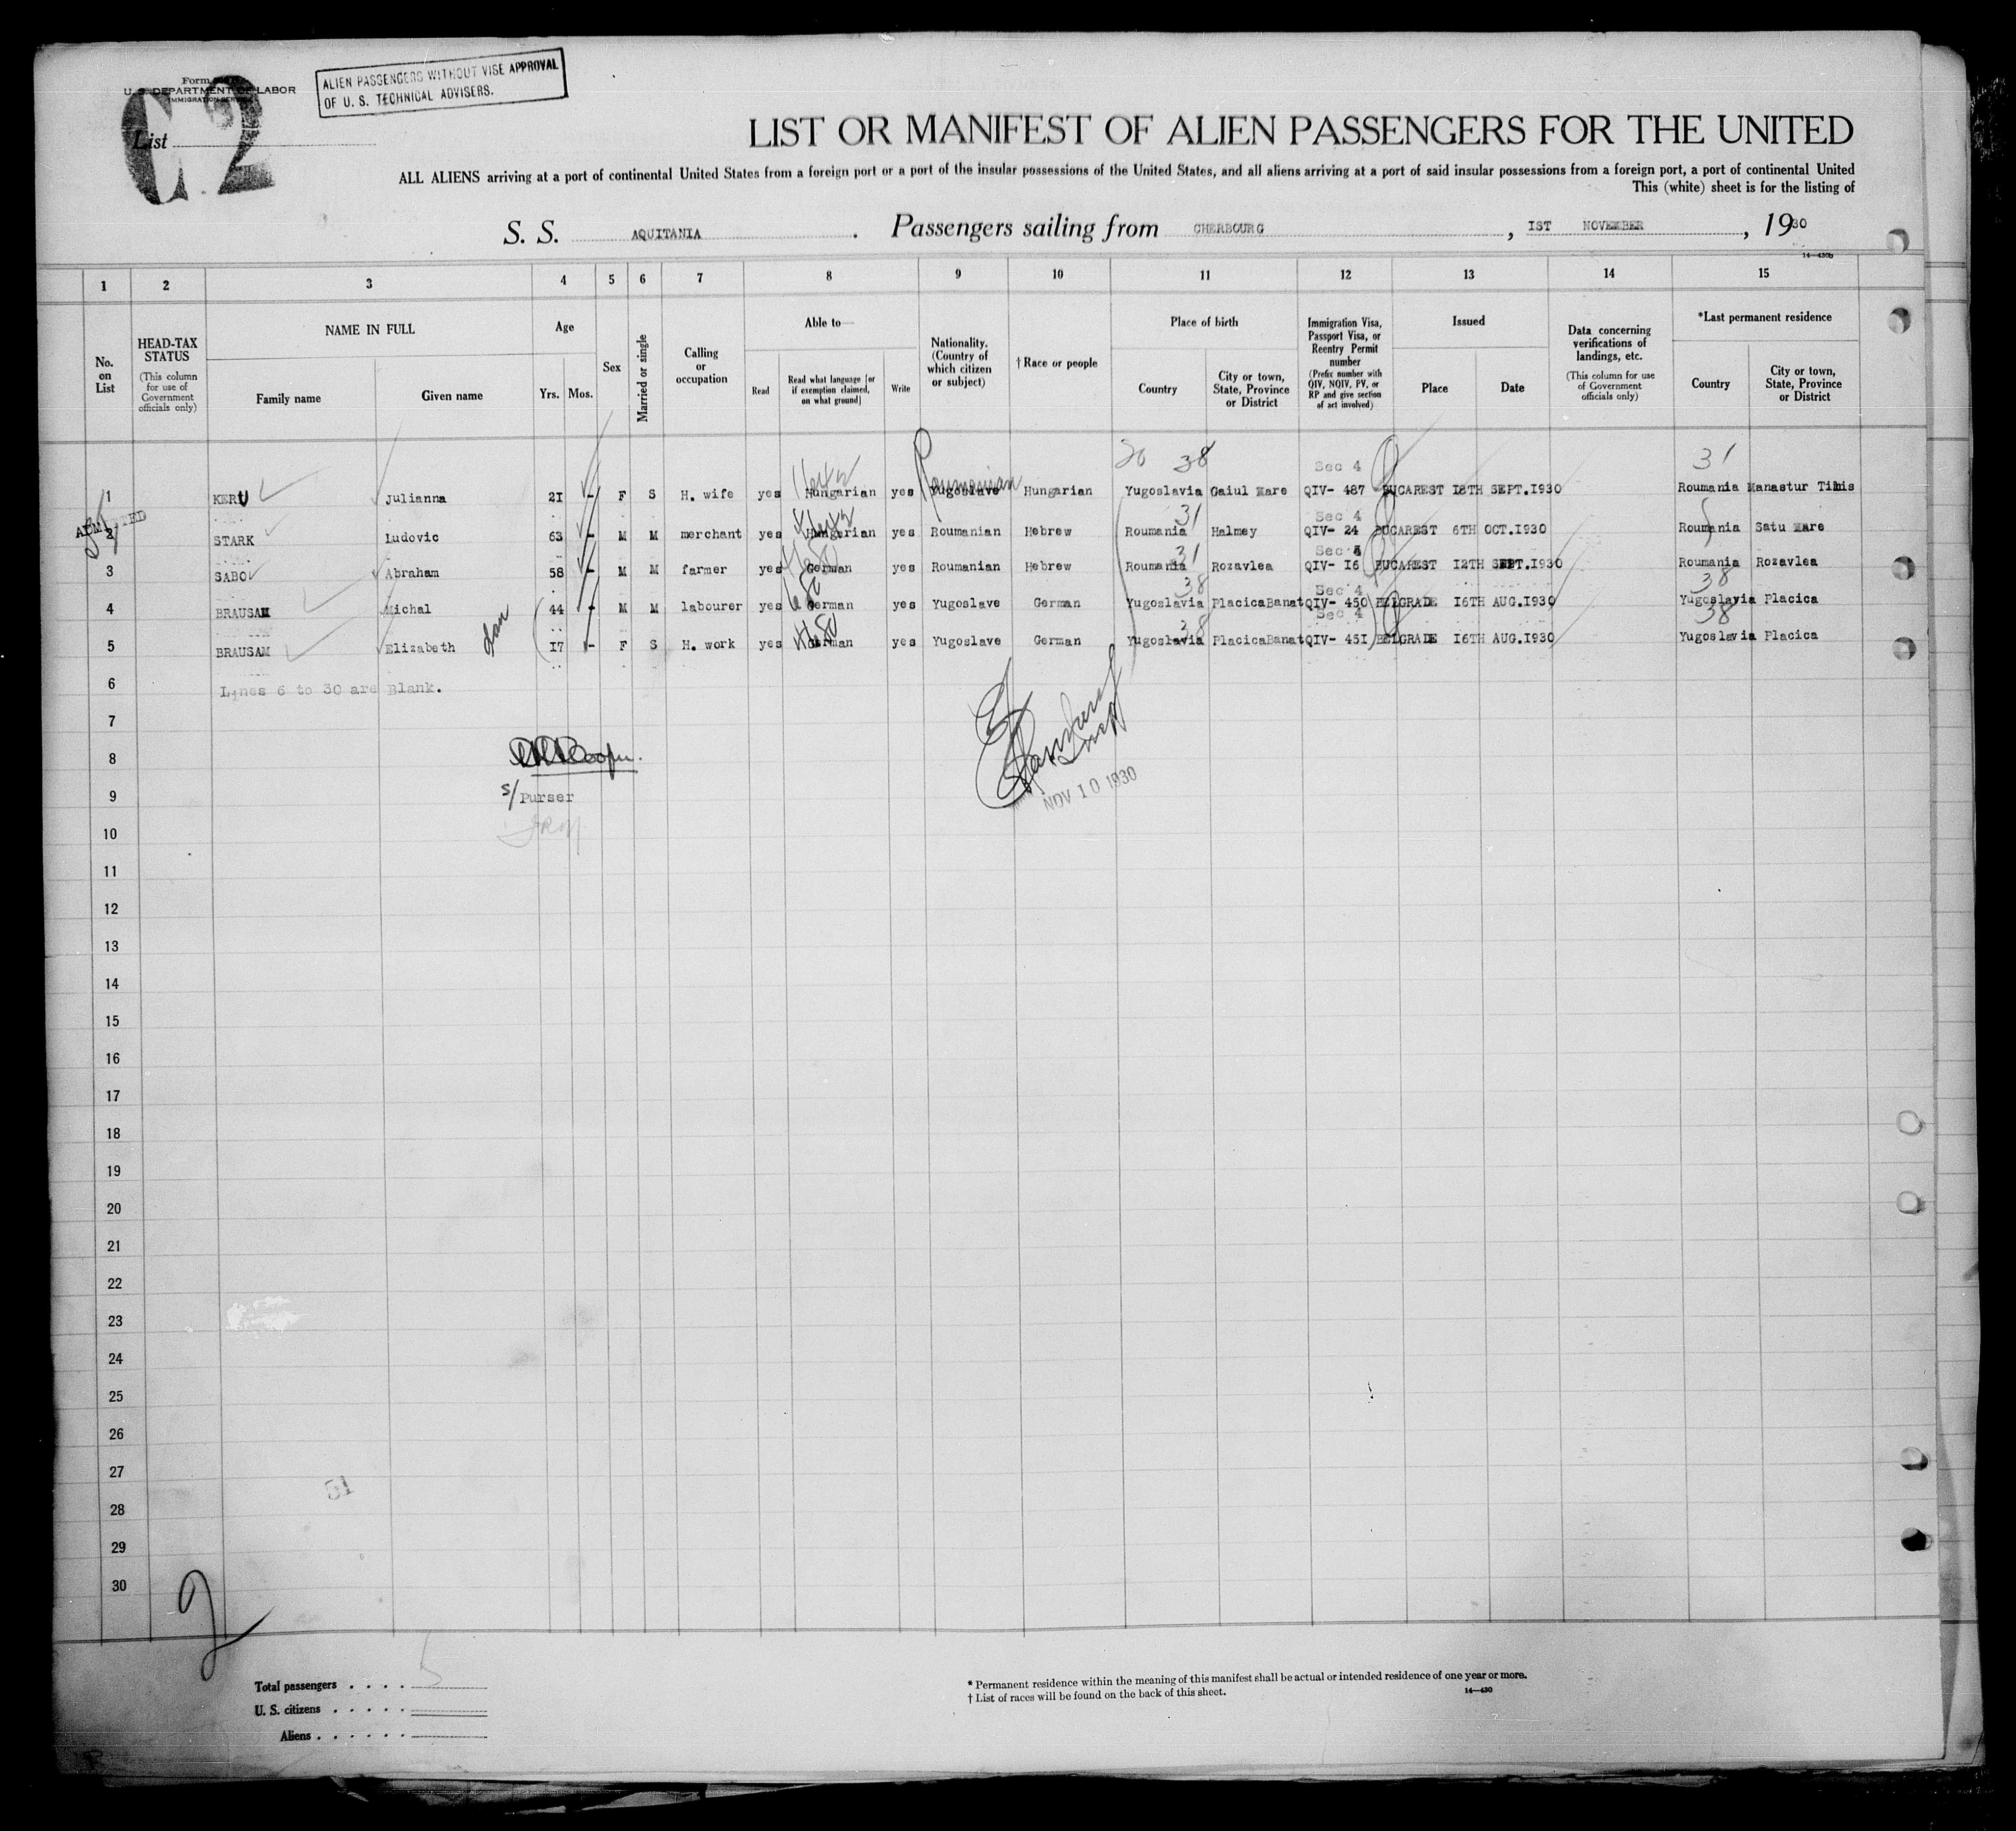 Form
U. S. DEPARTMENT OF LABOR
IMMIGRATION SERVICE
C2
List
ALIEN PASSENGERS WITHOUT VISE APPROVAL
OF U. S. TECHNICAL ADVISERS.
LIST OR MANIFEST OF ALIEN PASSENGERS FOR THE UNITED
ALL ALIENS arriving at a port of continental United States from a foreign port or a port of the insular possessions of the United States, and all aliens arriving at a port of said insular possessions from a foreign port, a port of continental United
This (white) sheet is for the listing of
S. S. AQUITANIA. Passengers sailing from CHERBOURG, 1ST NOVEMBER, 1930
14—430b
1 2 3 4 5 6 7 8 9 10 11 12 13 14 15
No. on List
HEAD-TAX STATUS (This column for use of Government officials only)
NAME IN FULL
Family name Given name
Age
Yrs. Mos.
Sex
Married or single
Calling or occupation
Able to—
Read Read what language [or if exemption claimed, on what ground] Write
Nationality. (Country of which citizen or subject)
† Race or people
Place of birth
Country City or town, State, Province or District
Immigration Visa, Passport Visa, or Reentry Permit number (Prefix number with QIV, NQIV, PV, or RP and give section of act involved)
Issued
Place Date
Data concerning verifications of landings, etc. (This column for use of Government officials only)
*Last permanent residence
Country City or town, State, Province or District
20 38 Sec 4 31
Roumanian
1 KERU Julianna 21 - F S H. wife yes Hungarian yes Yugoslave Hungarian Yugoslavia Gaiul Mare QIV- 487 BUCAREST 18TH SEPT.1930 Roumania Manastur Timis
ADMITTED
31 Sec 4
2 STARK Ludovic 63 - M M merchant yes Hungarian yes Roumanian Hebrew Roumania Halmey QIV- 24 BUCAREST 6TH OCT.1930 Roumania Satu Mare
31 Sec 4
3 SABO Abraham 58 - M M farmer yes German yes Roumanian Hebrew Roumania Rozavlea QIV- 16 BUCAREST 12TH SEPT.1930 Roumania Rozavlea
38 Sec 4 38
4 BRAUSAM Michal 44 - M M labourer yes German yes Yugoslave German Yugoslavia PlacicaBanat QIV- 450 BELGRADE 16TH AUG.1930 Yugoslavia Placica
38 Sec 4 38
5 BRAUSAM Elizabeth dau 17 - F S H. work yes German yes Yugoslave German Yugoslavia PlacicaBanat QIV- 451 BELGRADE 16TH AUG.1930 Yugoslavia Placica
6 Lines 6 to 30 are Blank.
7
8
9 s/ Purser
NOV 10 1930
10
11
12
13
14
15
16
17
18
19
20
21
22
23
24
25
26
27
28
29
30
2
Total passengers . . . . 5
U. S. citizens . . . . .
Aliens . . . . . .
* Permanent residence within the meaning of this manifest shall be actual or intended residence of one year or more.
† List of races will be found on the back of this sheet.
14—430